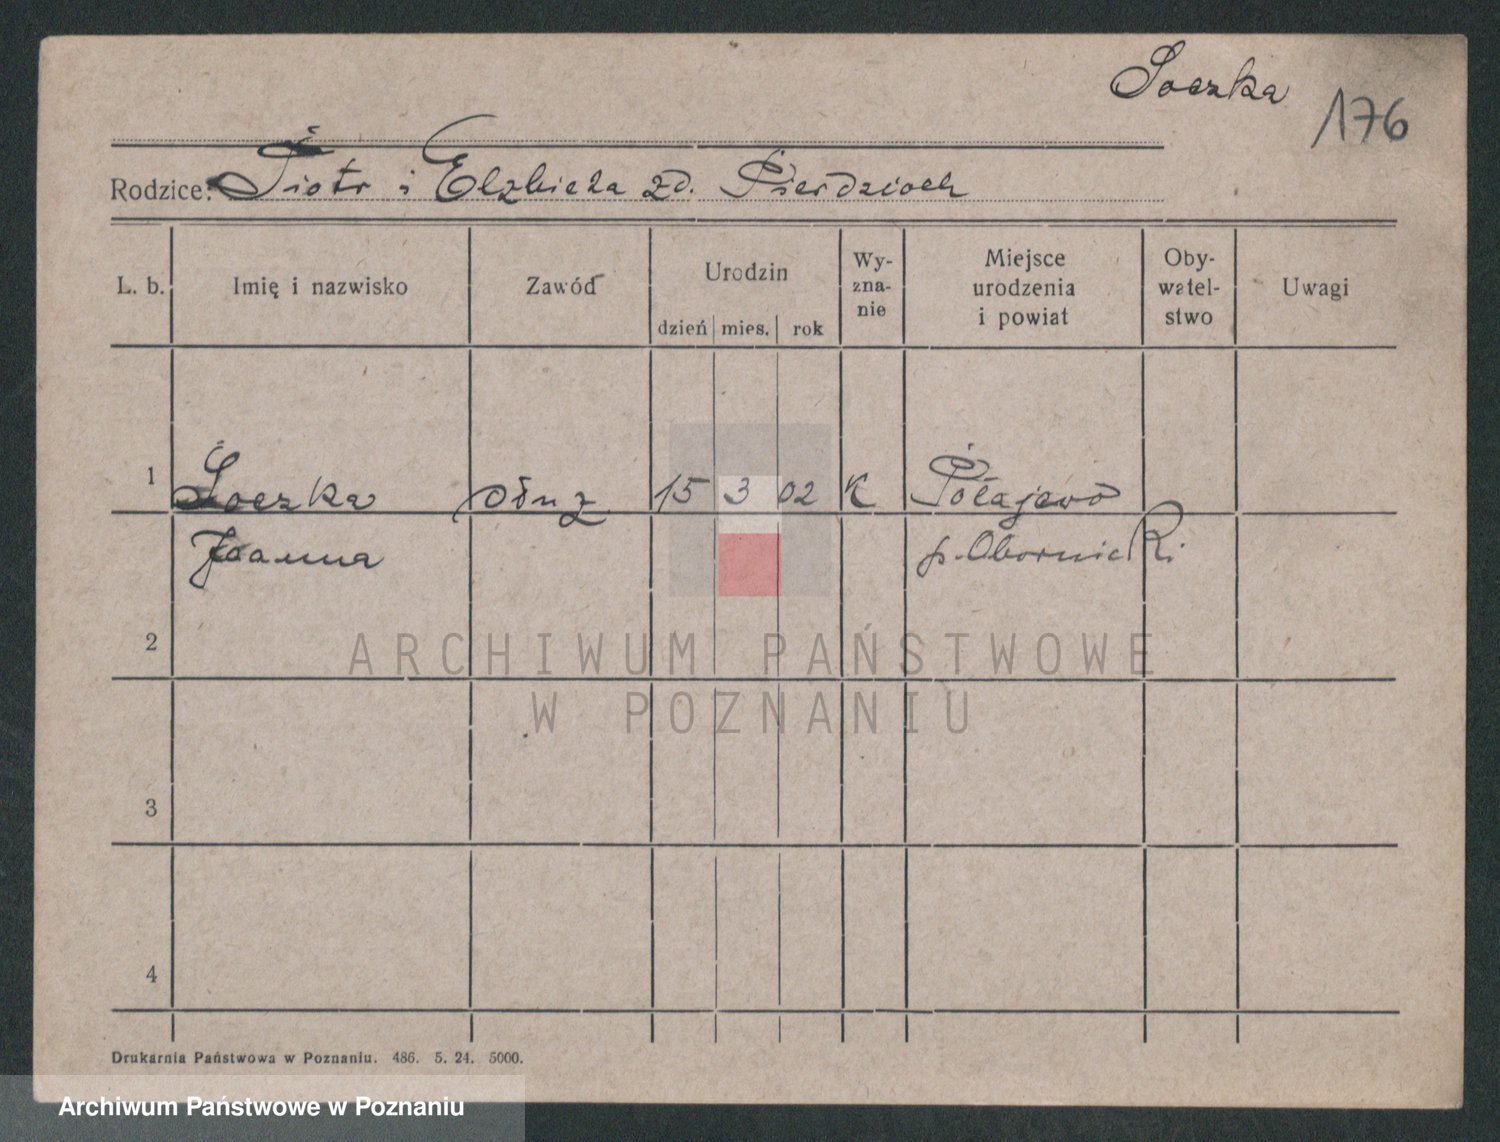 Soczka
176
Rodzice: Piotr i Elzbieta zd. Pierdzioch
L. b. Imię i nazwisko Zawód Urodzin Wy-zna-nie Miejsce urodzenia i powiat Oby-watel-stwo Uwagi
dzień mies. rok
1 Soczka 15 3 02 K Połajewo
Joanna p. Obornicki
2
3
4
ARCHIWUM PAŃSTWOWE
W POZNANIU
Drukarnia Państwowa w Poznaniu. 486. 5. 24. 5000.
Archiwum Państwowe w Poznaniu